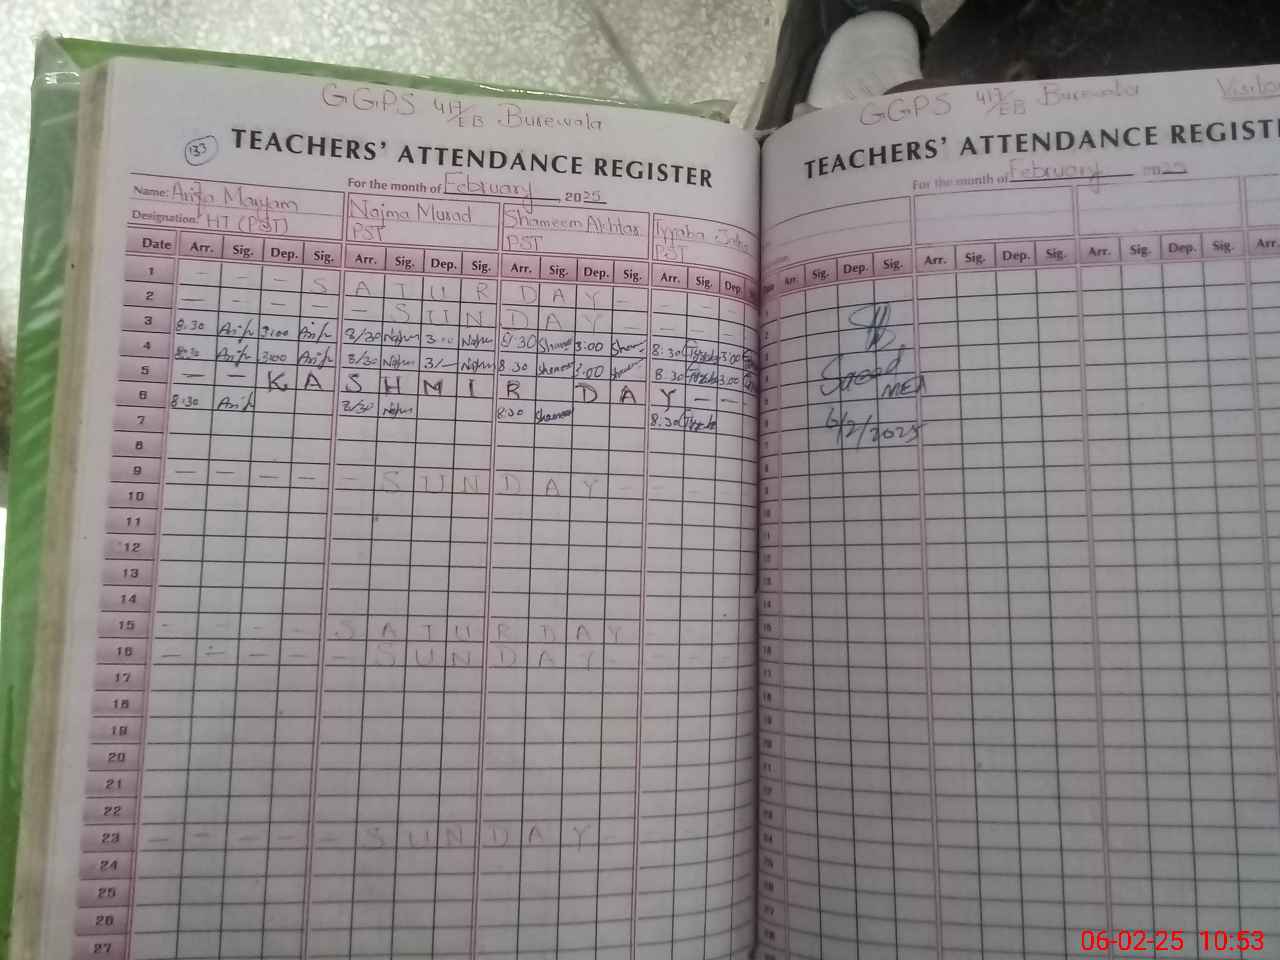 GGPS 417/EB Burewala
133
TEACHERS' ATTENDANCE REGISTER
For the month of February, 2025
Name: Arifa Maryam
Designation: HT (PST)
Najma Murad
PST
Shameem Akhtar
PST
Tyyaba
PST
Date Arr. Sig. Dep. Sig. Arr. Sig. Dep. Sig. Arr. Sig. Dep. Sig. Arr. Sig. Dep.
1 - - - S A T U R D A Y - - - -
2 - - - - - S U N D A Y - - - -
3 8:30 3:00 8/30 3:00 8:30 3:00 8:30 3:00
4 8:30 3:00 8/30 3/- 8:30 3:00 8:30 3:00
5 - - K A S H M I R D A Y - - -
6 8:30 8/30 8:30 8:30
7
8
9 - - - - - S U N D A Y - - - -
10
11
12
13
14
15 - - - - S A T U R D A Y - - -
16 - - - - - S U N D A Y - - - -
17
18
19
20
21
22
23 - - - - - S U N D A Y -
24
25
26
27
GGPS 417/EB Burewala
TEACHERS' ATTENDANCE REGIST
For the month of February 2025
Arr. Sig. Dep. Sig. Arr. Sig. Dep. Sig. Arr. Sig. Dep. Sig. Arr.
Saeed
MEA
6/2/2025
06-02-25 10:53